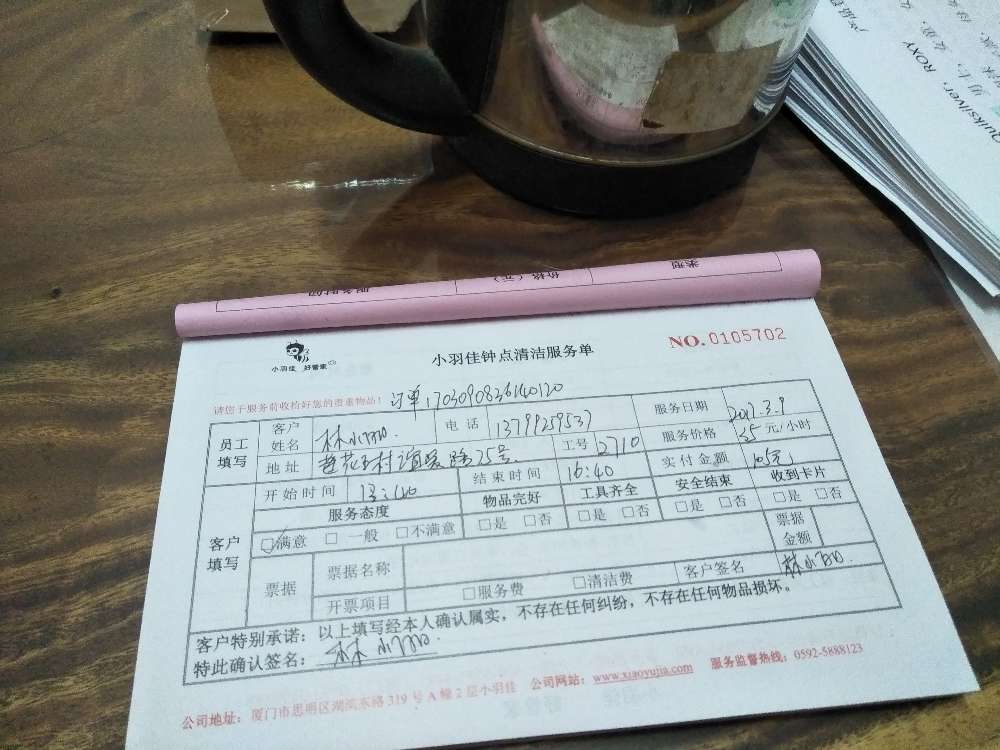 产品
Quiksilver, ROXY
男士、女
类型
价格（元）
服务时间
小羽佳 好管家
小羽佳钟点清洁服务单
NO.0105702
请您于服务前收拾好您的贵重物品！
订单1703090836140120
员工填写
客户姓名
电话 13799259537
服务日期 2017.3.9
地址 莲花五村谊爱路75号
工号 2710
服务价格 35元/小时
开始时间 13:40
结束时间 16:40
实付金额 105元
客户填写
服务态度 物品完好 工具齐全 安全结束 收到卡片
☑满意 □一般 □不满意 □是 □否 □是 □否 □是 □否 □是 □否
票据
票据名称
票据金额
开票项目 □服务费 □清洁费
客户签名
客户特别承诺：以上填写经本人确认属实，不存在任何纠纷，不存在任何物品损坏。
特此确认签名：
公司地址：厦门市思明区湖滨东路319号A幢2层小羽佳 公司网站：www.xiaoyujia.com 服务监督热线：0592-5888123